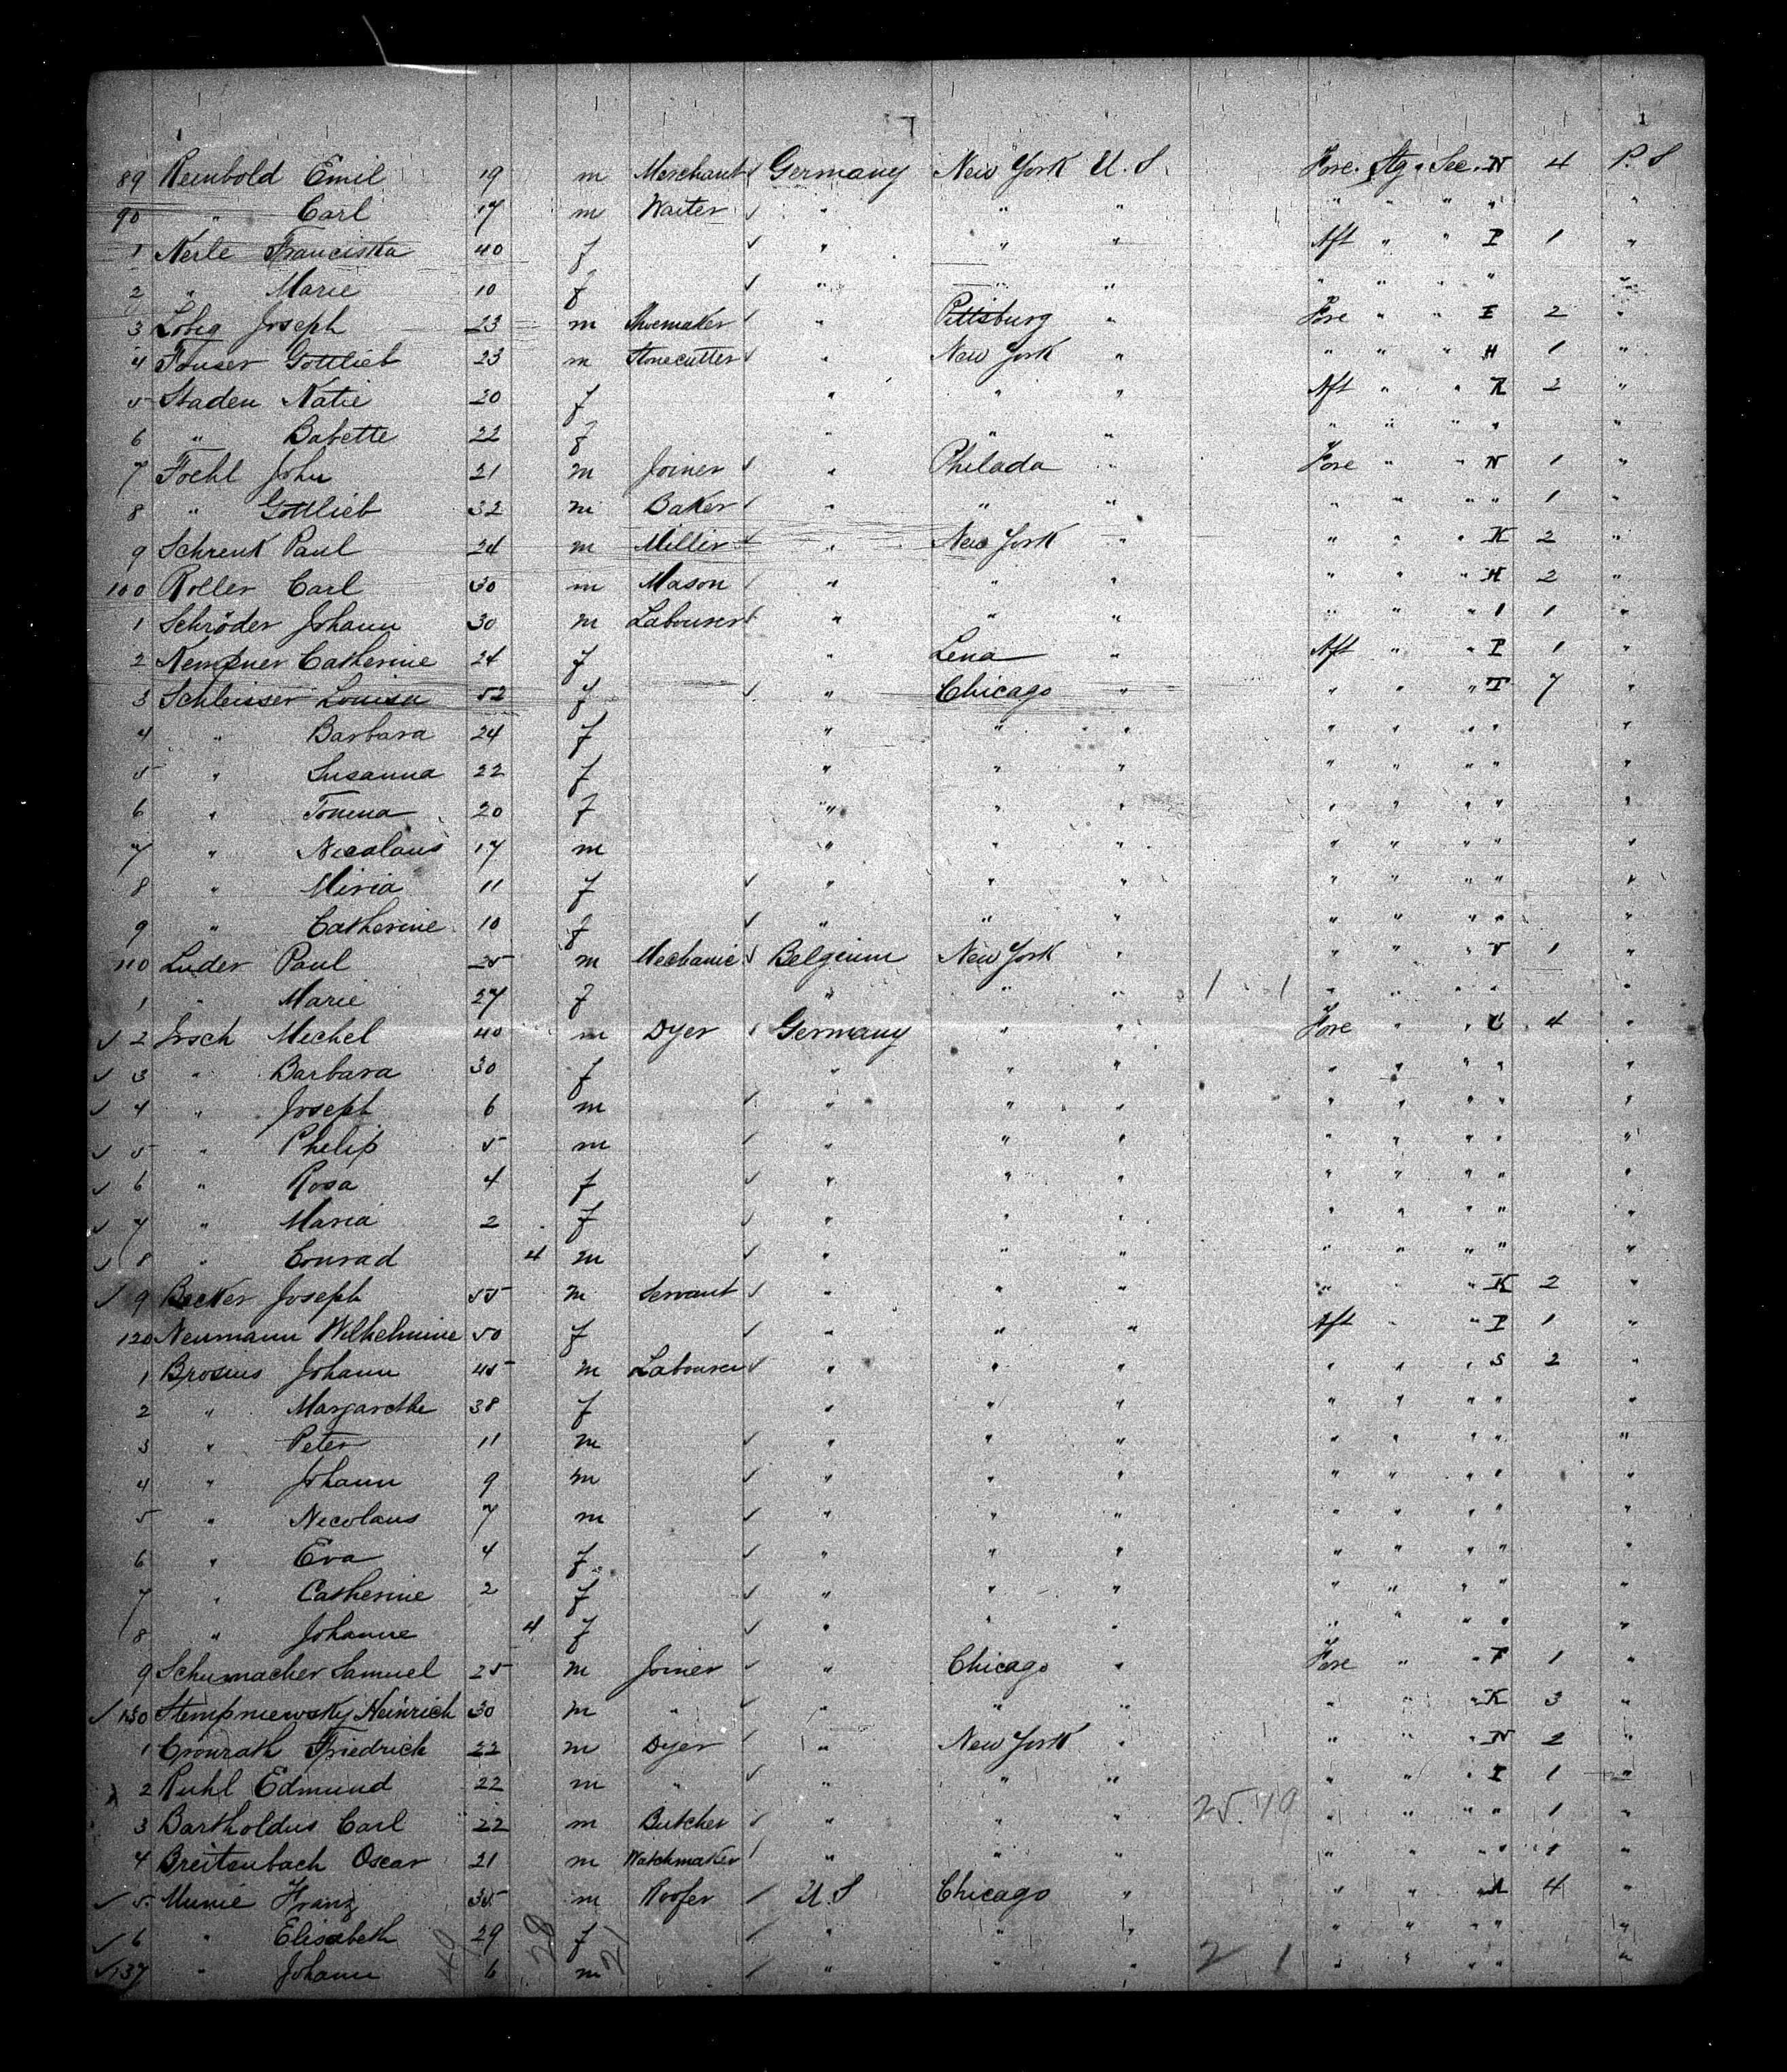 89 Reinbold Emil 19 m Merchant Germany New York U. S. Fore. Stg. Sec. N 4 P. S
90 " Carl 17 m Waiter " " " " " " "
1 Nerle Franciska 40 f " " " Aft " " I 1 "
2 " Marie 10 f " " " " " " " "
3 Lobig Joseph 23 m Shoemaker " Pittsburg " Fore " " I 2 "
4 Fauser Gottlieb 23 m Stonecutter " New York " " " " H 1 "
5 Staden Katie 20 f " " " Aft " " R 2 "
6 " Babette 22 f " " " " " " " "
7 Foehl John 21 m Joiner " Philada " Fore " " N 1 "
8 " Gottlieb 32 m Baker " " " " " " " 1 "
9 Schrenk Paul 24 m Miller " New York " " " " K 2 "
100 Roller Carl 30 m Mason " " " " " " H 2 "
1 Schröder Johann 30 m Labourer " " " " " " 1 1 "
2 Kempner Catherine 24 f " Lena " Aft " " P 1 "
3 Schleisser Louisa 52 f " Chicago " " " " T 7 "
4 " Barbara 24 f " " " " " " " "
5 " Susanna 22 f " " " " " " " "
6 " 20 f " " " " " " " "
7 " Nicolaus 17 m " " " " " " " "
8 " Miria 11 f " " " " " " " "
9 " Catherine 10 f " " " " " " " "
110 Luder Paul 25 m Mechanic Belgium New York " " " " T 1 "
1 " Marie 27 f " " " 1 1 " " " " "
2 Irsch Mechel 40 m Dyer Germany " " Fore " " U 4 "
3 " Barbara 30 f " " " " " " " "
4 " Joseph 6 m " " " " " " " "
5 " Philip 5 m " " " " " " " "
6 " Rosa 4 f " " " " " " " "
7 " Maria 2 f " " " " " " " "
8 " Conrad 4 m " " " " " " " "
9 Becker Joseph 55 m Servant " " " " " " K 2 "
120 Neumann Wilhelmine 50 f " " " Aft " " P 1 "
1 Brosius Johann 45 m Labourer " " " " " " S 2 "
2 " Margarethe 38 f " " " " " " " "
3 " Peter 11 m " " " " " " " "
4 " Johann 9 m " " " " " " " "
5 " Nicolaus 7 m " " " " " " " "
6 " Eva 4 f " " " " " " " "
7 " Catherine 2 f " " " " " " " "
8 " Johanne 4 f " " " " " " " "
9 Schumacher Samuel 25 m Joiner " Chicago " Fore " " T 1 "
130 Stempniewsky Heinrich 30 m " " " " " " " K 3 "
1 Cronrath Friedrich 22 m Dyer " New York " " " " N 2 "
2 Ruhl Edmund 22 m " " " " " " " I 1 "
3 Bartholdus Carl 22 m Butcher " " " 25.19 " " " " 1 "
4 Breitenbach Oscar 21 m Watchmaker " " " " " " " 1 "
5 Munie Franz 35 m Roofer U. S Chicago " " " " 4 "
6 " Elisabeth 29 f " " " " " " " "
137 " Johann 6 m " " " 2 1 " " " " "
49 28 21